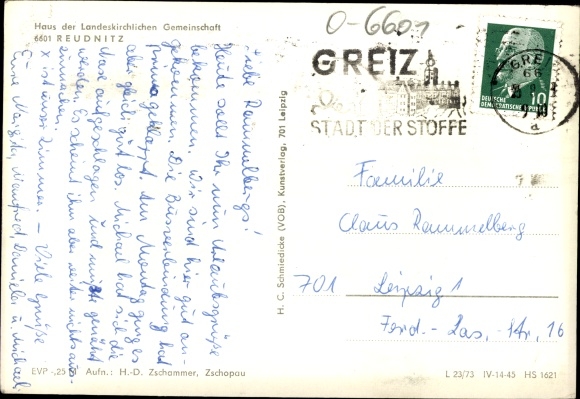 Haus der Landeskirchlichen Gemeinschaft
6601 REUDNITZ
O-6601
GREIZ
STADT DER STOFFE
GREIZ
66
DEUTSCHE
DEMOKRATISCHE REPUBLIK
10
Liebe Rammelbergs!
Heute sollt Ihr nun Urlaubsgrüße
bekommen. Wir sind hier gut an-
gekommen. Die Busverbindung hat
prima geklappt. Am Montag ging es
aber gleich gut los. Michael hat sich die
Nase aufgeschlagen und mußte genäht
werden. Es scheint ihm aber weiter nichts aus-
zumachen.
x ist unser Zimmer. – Viele Grüße
Eure Margita, Manfred, Daniela u. Michael
Familie
Claus Rammelberg
701 Leipzig 1
Ferd.-Las.-Str. 16
H. C. Schmiedicke (VOB), Kunstverlag, 701 Leipzig
EVP -,25 Aufn.: H.-D. Zschammer, Zschopau
L 23/73 IV-14-45 HS 1621